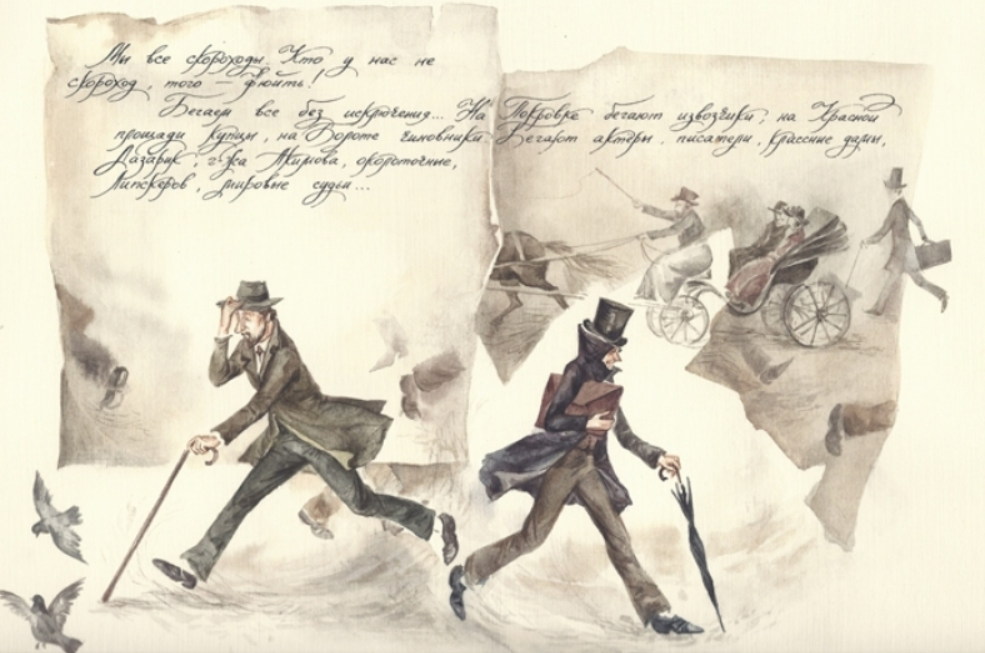 Мы все скороходы. Кто у нас не
скороход, того — фюить!
Бегаем все без исключения... На Покровке бегают извозчики, на Красной
площади купцы, на Вороте чиновники. Бегают актеры, писатели, классные дамы,
Лазарик, г-жа Акимова, околоточные,
Липскеров, мировые судьи...